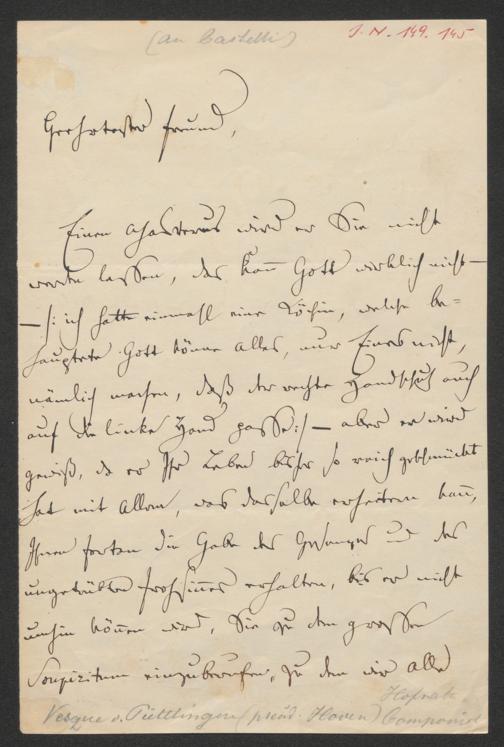 (an Castelli)
I. N. 149. 145
Geehrtester Freund,
Einen Ahasverus wird er Sie nicht
werden lassen, das kann Gott wirklich nicht —
— /: ich hatte einmahl eine Köchin, welche be-
hauptete Gott könne alles, nur Eines nicht,
nämlich machen, daß der rechte Handschuh auch
auf die linke Hand passe :/ — aber er wird
gewiß, da er Ihr Leben bisher so reich geschmückt
hat mit Allem, was dasselbe erheitern kann,
Ihnen fortan die Gabe des Gesanges und des
ungetrübten Frohsinnes erhalten, bis er nicht
umhin können wird, Sie zu dem grossen
einzuberufen, zu dem wir alle
Hofrath
Vesque v. Püttlingen (pseud. Hoven) Componist